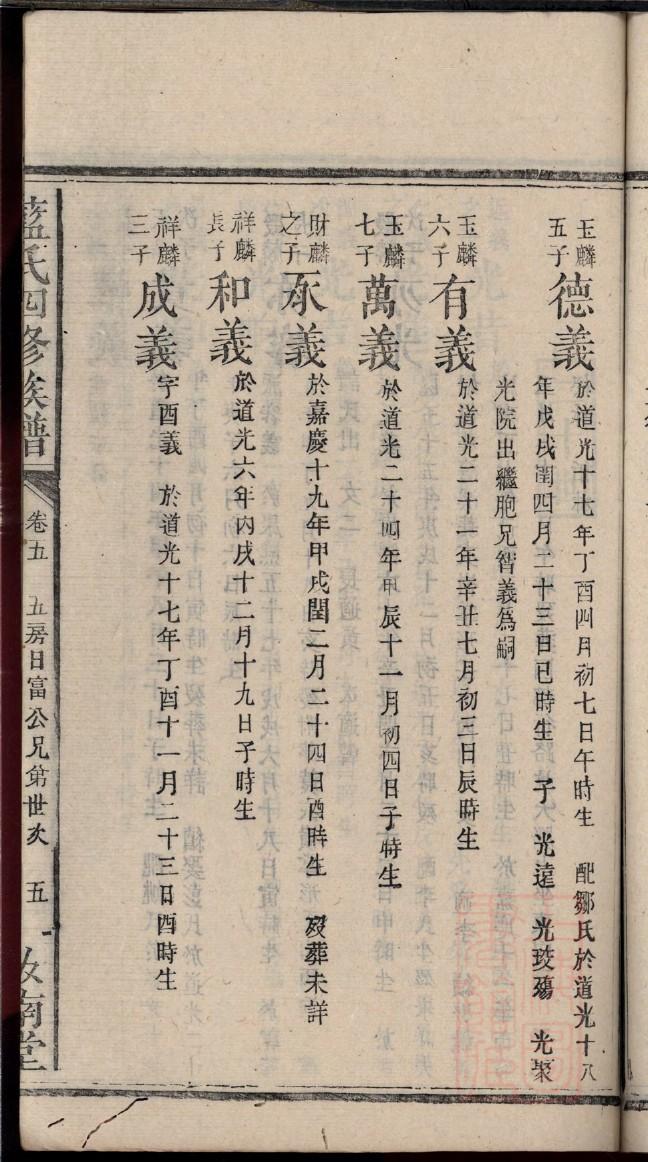 玉麟
五子
德義
於道光十七年丁酉四月初七日午時生 配鄒氏於道光十八
年戊戌閏四月二十三日巳時生 子 光遠 光玫殤 光聚
光院出繼胞兄智義爲嗣
玉麟
六子
有義
於道光二十一年辛丑七月初三日辰時生
玉麟
七子
萬義
於道光二十四年甲辰十一月初四日子時生
財麟
之子
承義
於嘉慶十九年甲戌閏二月二十四日酉時生 歿葬未詳
祥麟
長子
和義
於道光六年丙戌十二月十九日子時生
祥麟
三子
成義
字酉義 於道光十七年丁酉十一月二十三日酉時生
藍氏四修族譜
卷五 五房日富公兄第世次 五
汝南堂